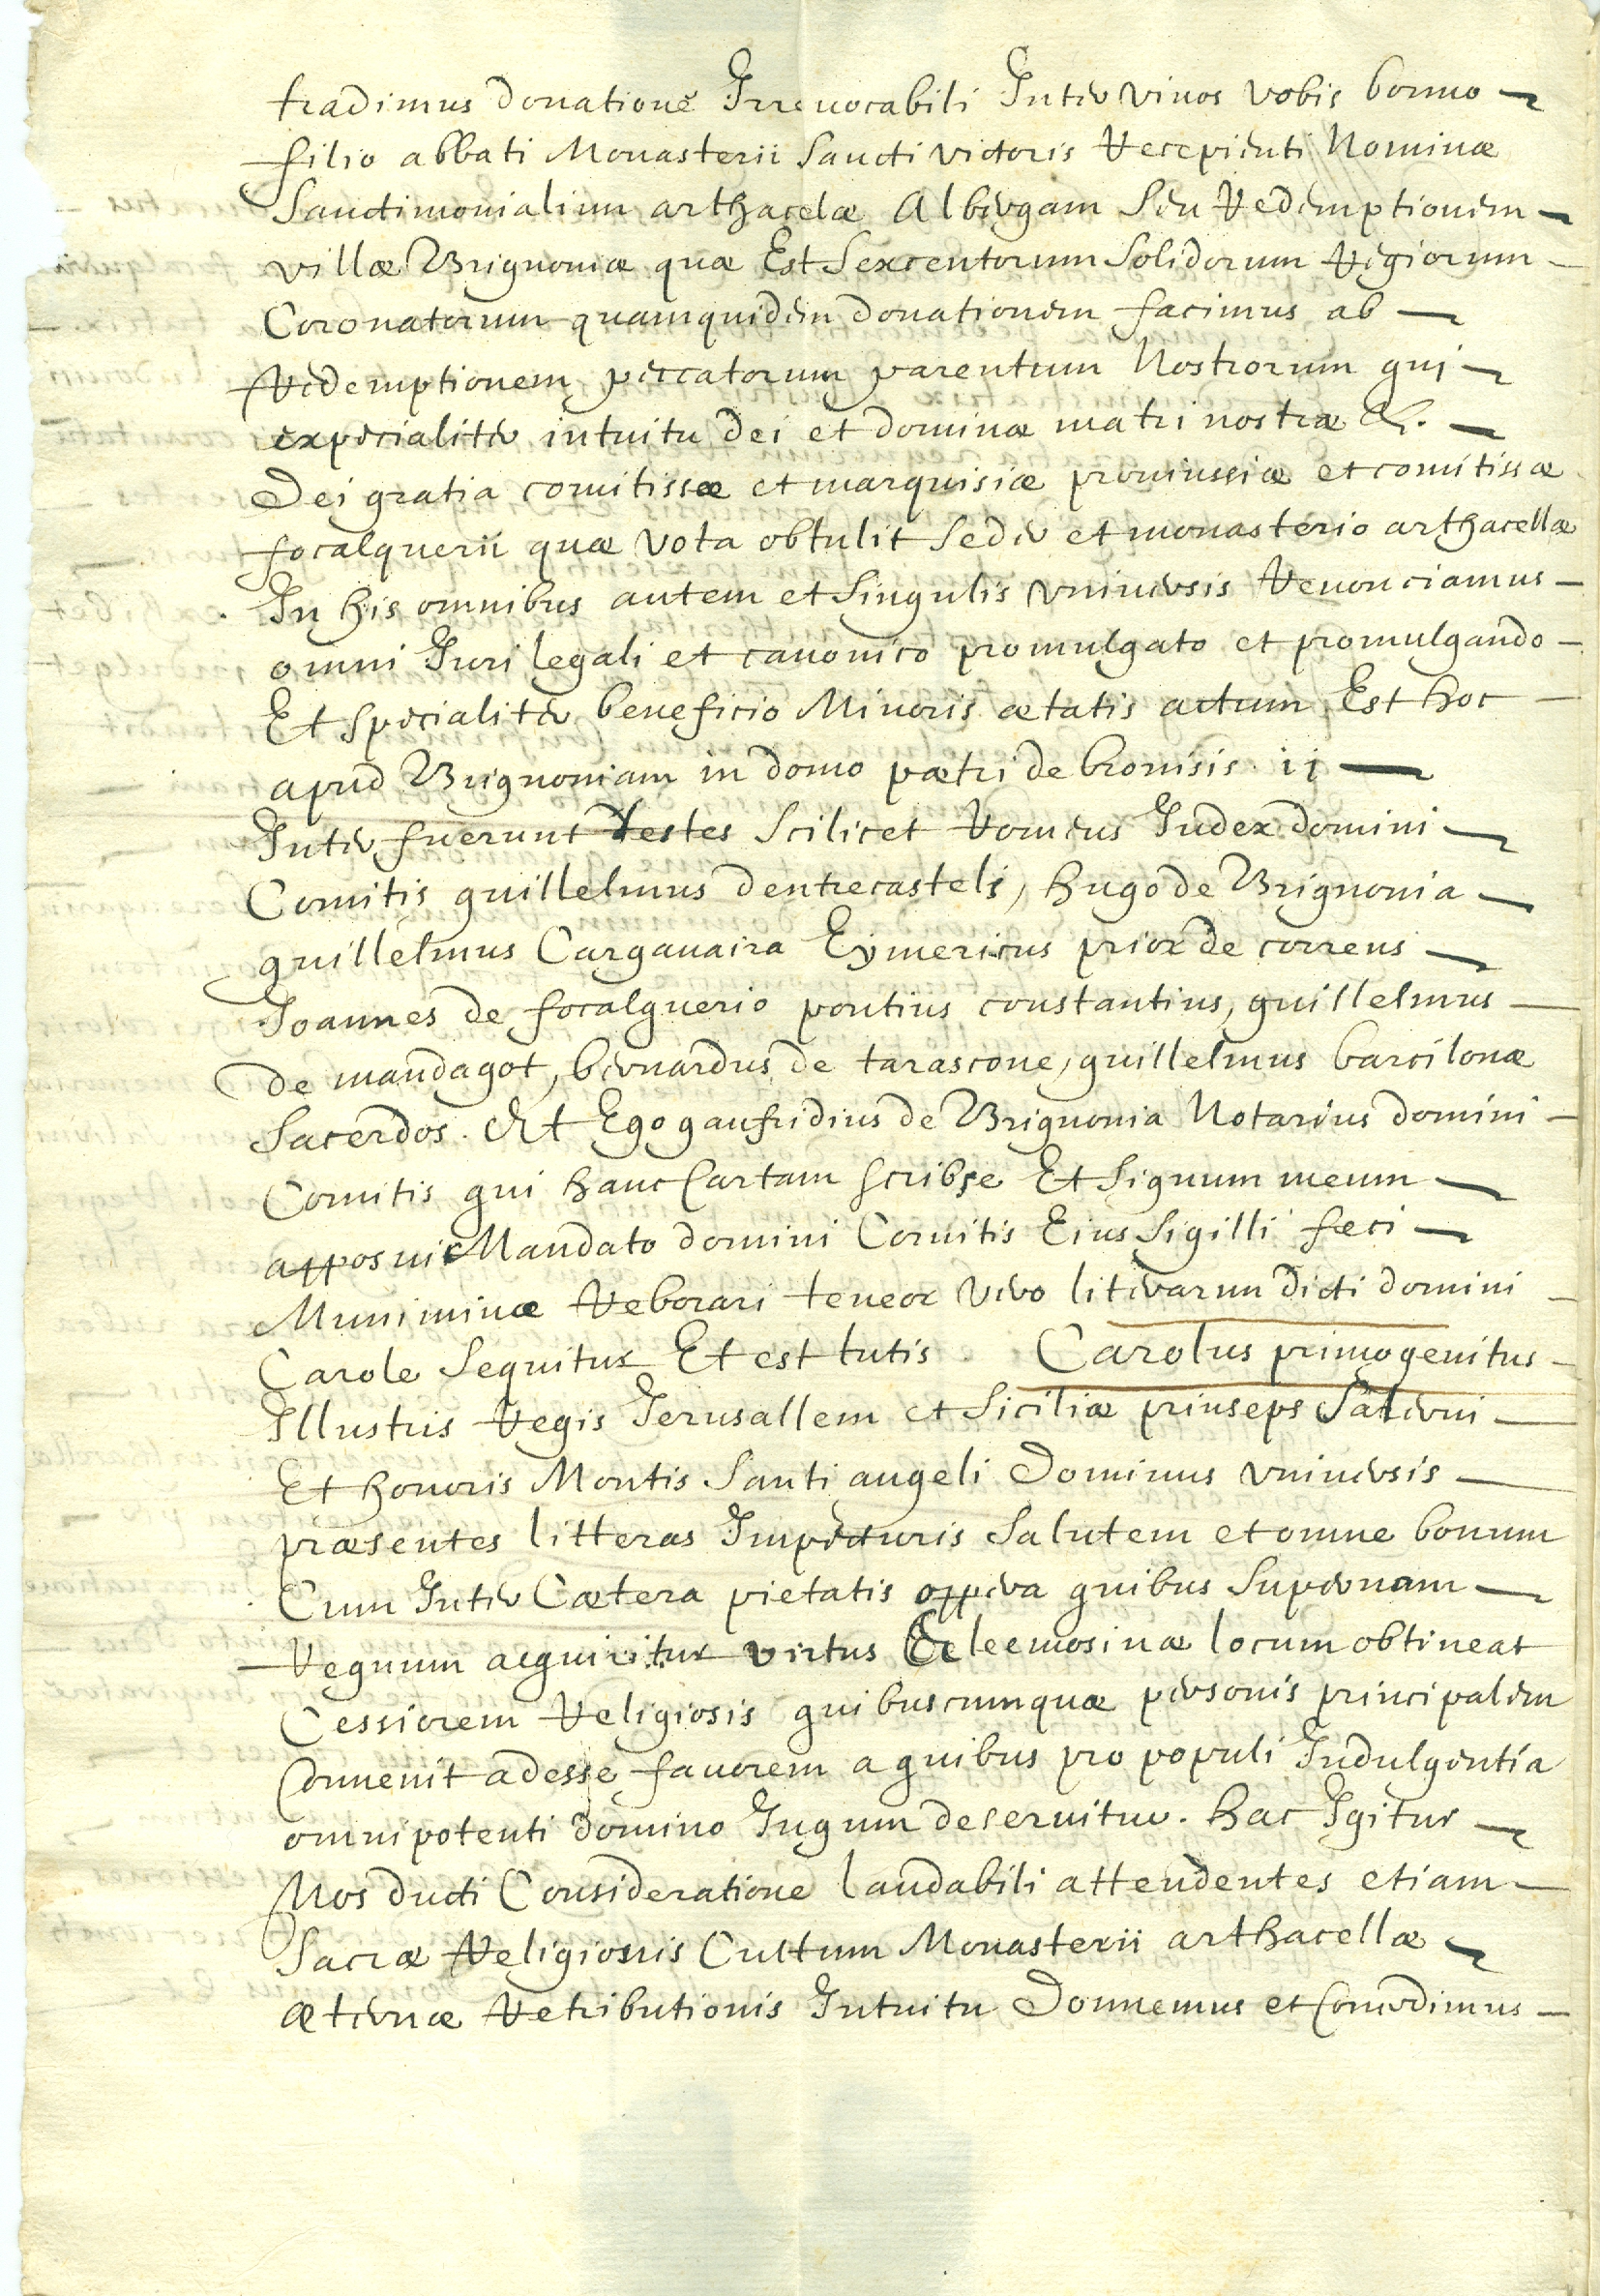 tradimus donatione Irrevocabili Inter vivos vobis bonno
filio abbati Monasterii Sancti victoris Recepienti Nominæ
Sanctimonialium arthacelæ Albergam Seu Redemptionem
villæ Brignoniæ quæ Est Sexcentorum Solidorum Regiorum
Coronatorum quamquidem donationem facimus ab
Redemptionem peccatorum parentum Nostrorum qui
expecialiter intuitu dei et dominæ matri nostræ &.
Dei gratia comitissæ et marquisiæ provinssiæ et comitissæ
focalquerii quæ vota obtulit Seder et monasterio arthacellæ
In his omnibus autem et Singulis universis Renonciamus
omni Iuri legali et canonico promulgato et promulgando
Et Specialiter beneficio Minoris ætatis actum Est hoc
apud Brignoniam in domo pætri de bronisis. ij
Inter fuerunt testes Scilicet Romeus Iudex domini
Comitis guillelmus dentrecastels, hugo de Brignonia
guillelmus Carganaira Eymericus prior de correns
Ioannes de focalquerio pontius constantius, guillelmus
De mandagot, bernardus de tarascone, guillelmus barcilonæ
Sacerdos. Et Ego gaufridius de Brignonia Notarius domini
Comitis qui hanc Cartam scribse Et Signum meum
apposui Mandato domini Comitis Eius Sigilli fæci
Muniminæ Reborari teneor vero literarum dicti domini
Carole Sequitur Et est tutis. Carolus primogenitus
Illustris Regis Ierusallem et Siciliæ prinseps Salerni
Et honoris Montis Santi angeli Dominus universis
præsentes litteras Inpecturis Salutem et omne bonum
Cum Inter Cætera pietatis oppera quibus Supernam
Regnum acquiritur virtus Eleemosinæ locum obtineat
Cessiorem Religiosis quibuscumquæ personis principalem
Convenit adesse favorem a quibus pro populi Indulgentia
omnipotenti domino Iugum deservitur. hac Igitur
Nos ducti Consideratione laudabili attendentes etiam
Sacræ Religionis Cultum Monasterii arthacellæ
æternæ Retributionis Intuitu Donnemus et Concedimus